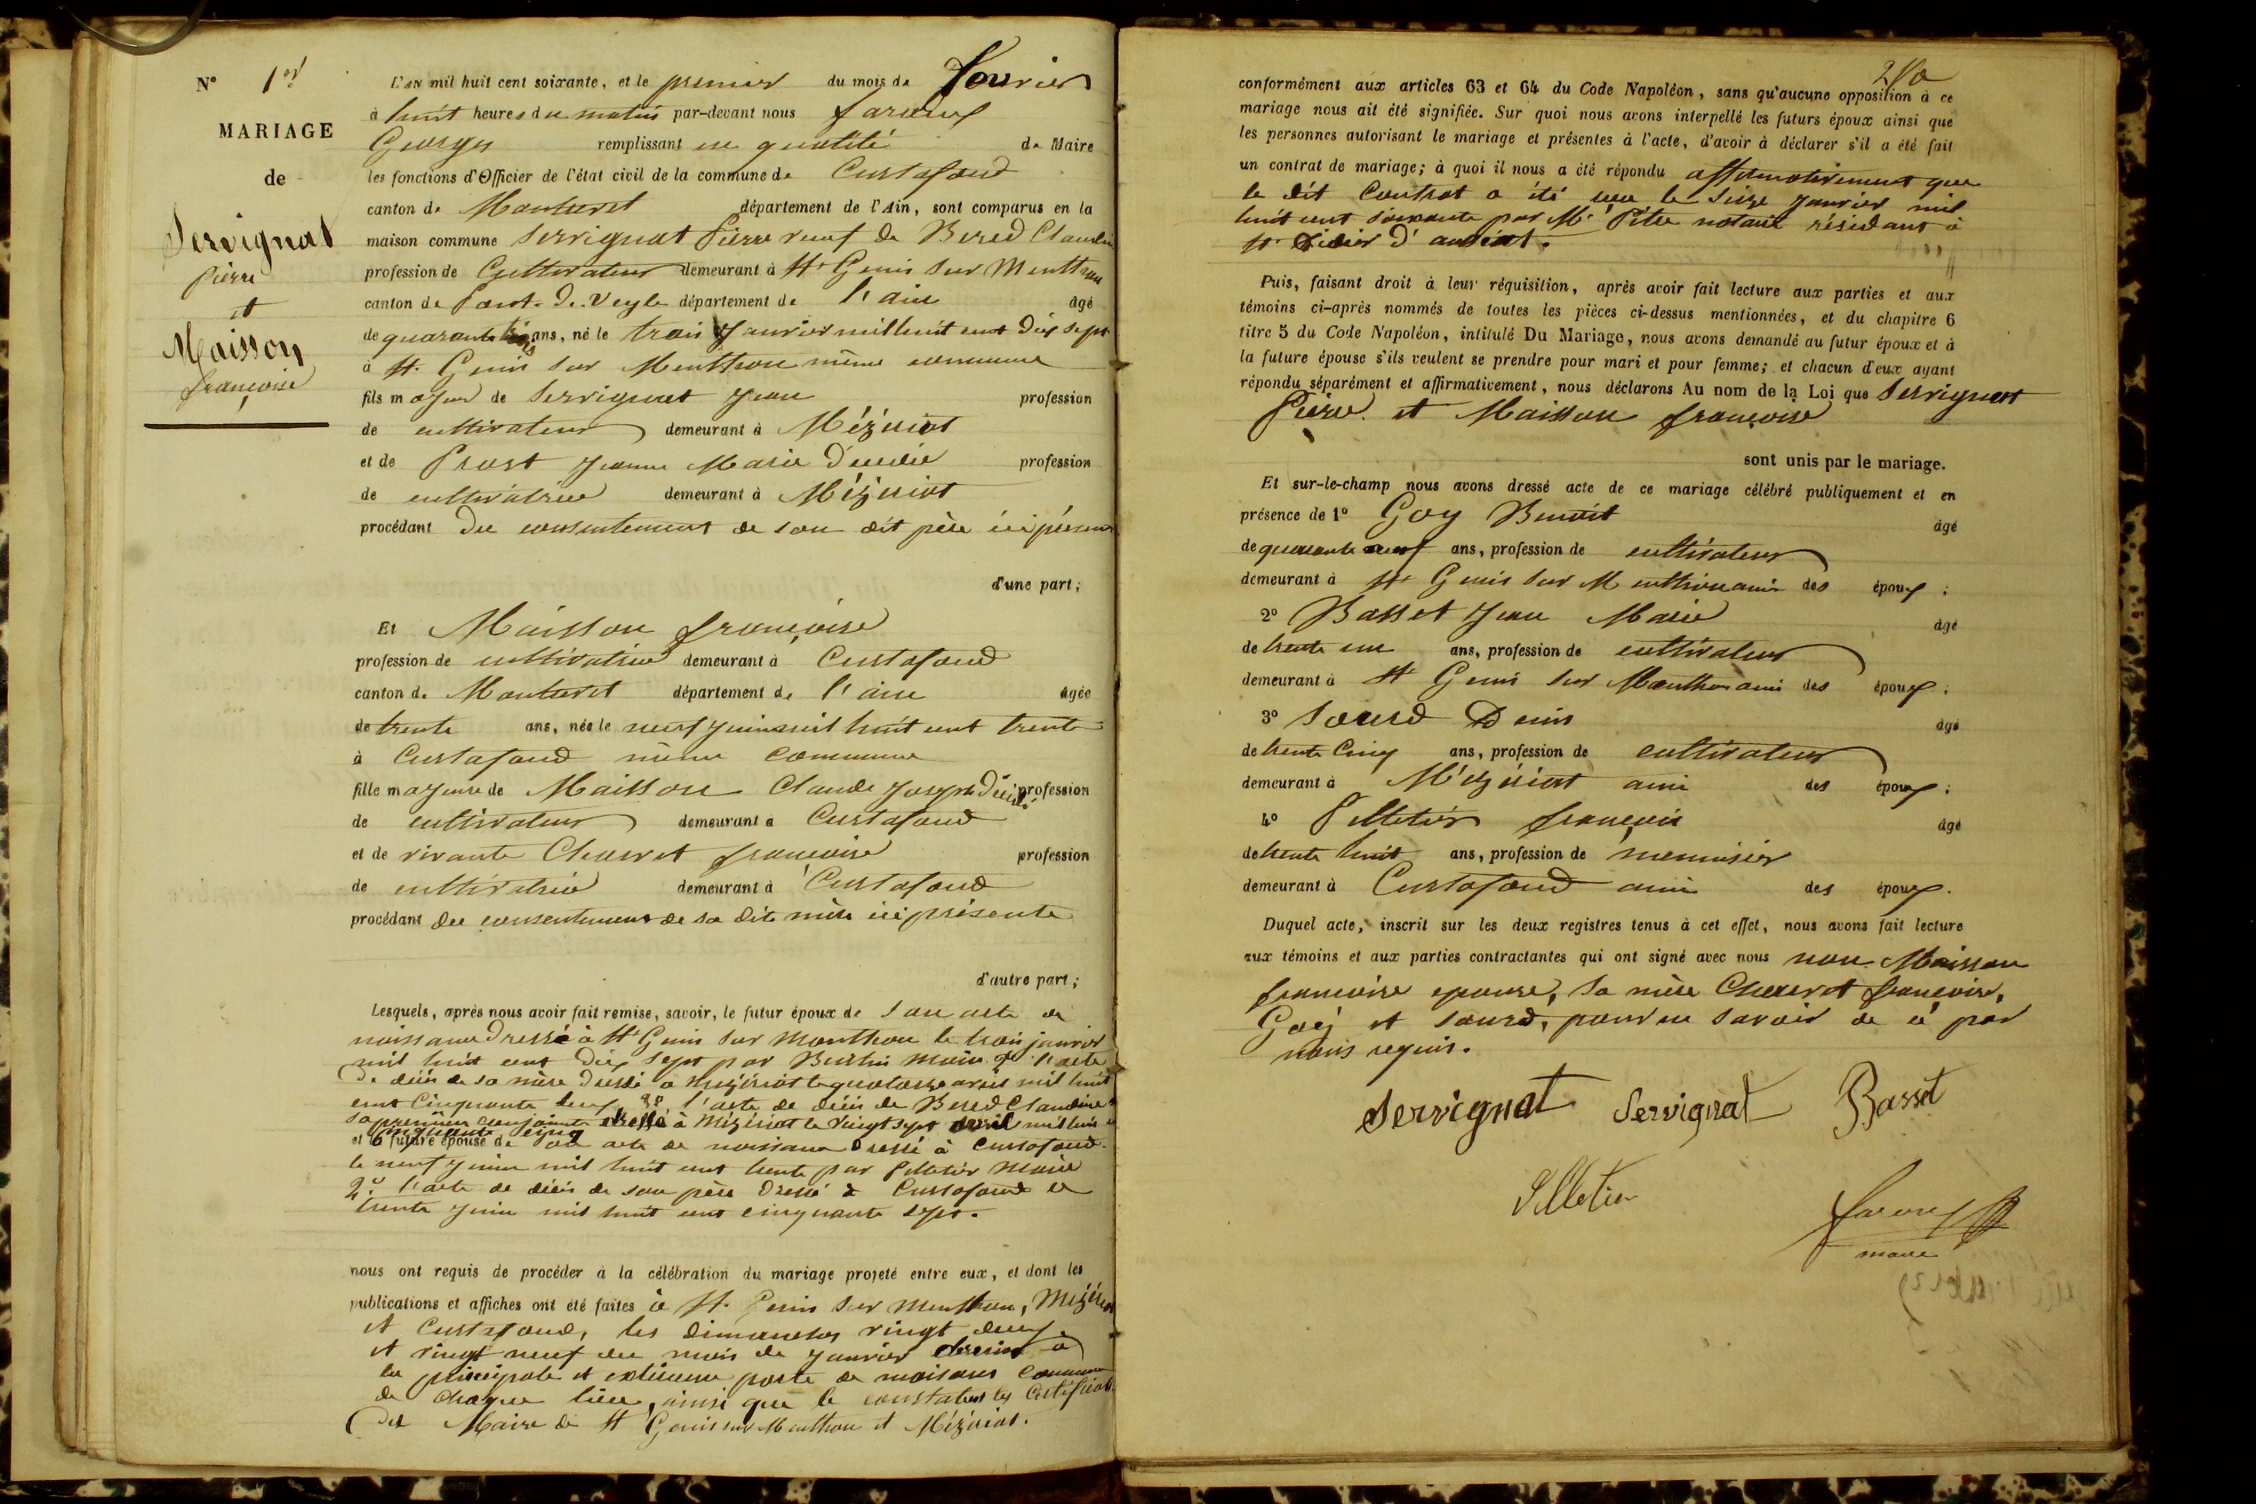 N° 1er
MARIAGE
de
Servignat
Pierre
et
Maisson
françoise
L'an mil huit cent soixante, et le premier du mois de fevrier
à huit heures du matin par-devant nous
Georges remplissant en qualité de Maire
les fonctions d'Officier de l'état civil de la commune de Curtafond
canton de Montrevel département de l'Ain, sont comparus en la
maison commune Servignat Pierre veuf de Bered Claudine
profession de Cultivateur demeurant à St Genis sur Menthon
canton de Pont-de-Veyle département de l'ain âgé
de quarante trois ans, né le trois Janvier mil huit cent dix sept
à St Genis sur Menthon même commune
fils majeur de Servignat Jean profession
de cultivateur demeurant à Mézériat
et de Prost Jeanne Marie décédée profession
de cultivatrice demeurant à Mézériat
procédant du consentement de son dit père ici présent
d'une part;
Et Maisson françoise
profession de cultivatrice demeurant à Curtafond
canton de Montrevel département de l'ain âgée
de trente ans, née le neuf Juin mil huit cent trente
à Curtafond même commune
fille majeure de Maisson Claude Joseph décédé profession
de cultivateur demeurant à Curtafond
et de vivante Chavret françoise profession
de cultivatrice demeurant à Curtafond
procédant du consentement de sa dite mère ici présente
d'autre part;
Lesquels, après nous avoir fait remise, savoir, le futur époux de son acte de
naissance dressé à St Genis sur Menthon le trois janvier
mil huit cent dix sept par maire 2° l'acte
de décès de sa mère dressé à Mézériat le quatorze avril mil huit
cent cinquante 3° l'acte de décès de Bered Claudine
sa première conjointe dressé à Mézériat le vingt sept avril mil huit
cinquante cinq
et la future épouse de son acte de naissance dressé à Curtafond
le neuf Juin mil huit cent trente par Pelletier maire
2° l'acte de décès de son père dressé à Curtafond le
trente Juin mil huit cent cinquante sept.
nous ont requis de procéder à la célébration du mariage projeté entre eux, et dont les
publications et affiches ont été faites à St Genis sur Menthon, Mézériat
et Curtafond, les dimanches vingt deux
et vingt neuf du mois de Janvier dernier à
la principale et extérieure porte de maisons commune
de chaque lieu, ainsi que le constatent les certificats
des Maire de St Genis sur Menthon et Mézériat.
conformément aux articles 63 et 64 du Code Napoléon, sans qu'aucune opposition à ce
mariage nous ait été signifiée. Sur quoi nous avons interpellé les futurs époux ainsi que
les personnes autorisant le mariage et présentes à l'acte, d'avoir à déclarer s'il a été fait
un contrat de mariage; à quoi il nous a été répondu affirmativement que
le dit Contrat a été reçu le seize Janvier mil
huit cent soixante par Me notaire résidant à
St Didier d'aussiat.
Puis, faisant droit à leur réquisition, après avoir fait lecture aux parties et aux
témoins ci-après nommés de toutes les pièces ci-dessus mentionnées, et du chapitre 6
titre 5 du Code Napoléon, intitulé Du Mariage, nous avons demandé au futur époux et à
la future épouse s'ils veulent se prendre pour mari et pour femme; et chacun d'eux ayant
répondu séparément et affirmativement, nous déclarons Au nom de la Loi que Servignat
Pierre et Maisson françoise
sont unis par le mariage.
Et sur-le-champ nous avons dressé acte de ce mariage célébré publiquement et en
présence de 1° Goy Benoit âgé
de quarante neuf ans, profession de cultivateur
demeurant à St Genis sur Menthon ami des époux;
2° Basset Jean Marie âgé
de trente un ans, profession de cultivateur
demeurant à St Genis sur Menthon ami des époux;
3° Sourd Denis âgé
de trente cinq ans, profession de cultivateur
demeurant à Mézériat ami des époux;
4° Pelletier françois âgé
de trente huit ans, profession de menuisier
demeurant à Curtafond ami des époux.
Duquel acte, inscrit sur les deux registres tenus à cet effet, nous avons fait lecture
aux témoins et aux parties contractantes qui ont signé avec nous non Maisson
françoise epouse, sa mère Chavret françoise,
Goy et Sourd, pour ne savoir de ce par
nous requis.
Servignat Servignat Basset
Pelletier
maire